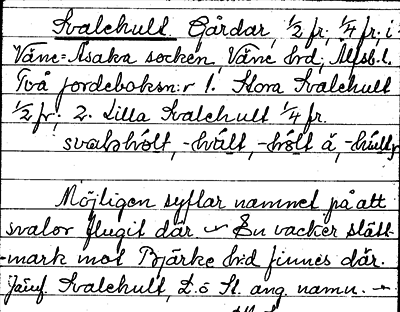 Svalehult. Gårdar, 1/2 fr; 1/4 fr; i
Väne-Åsaka socken, Väne hrd, Älfsb. l.
Två jordeboksn:r 1. Stora Svalehult
1/2 fr; 2. Lilla Svalehult 1/4 fr.
Möjligen syftar namnet på att
svalor flugit där – En vacker slätt-
-mark mot Bjärke h:d finnes där.
Jämf. Svalehult, L. o St. ang. namn. –